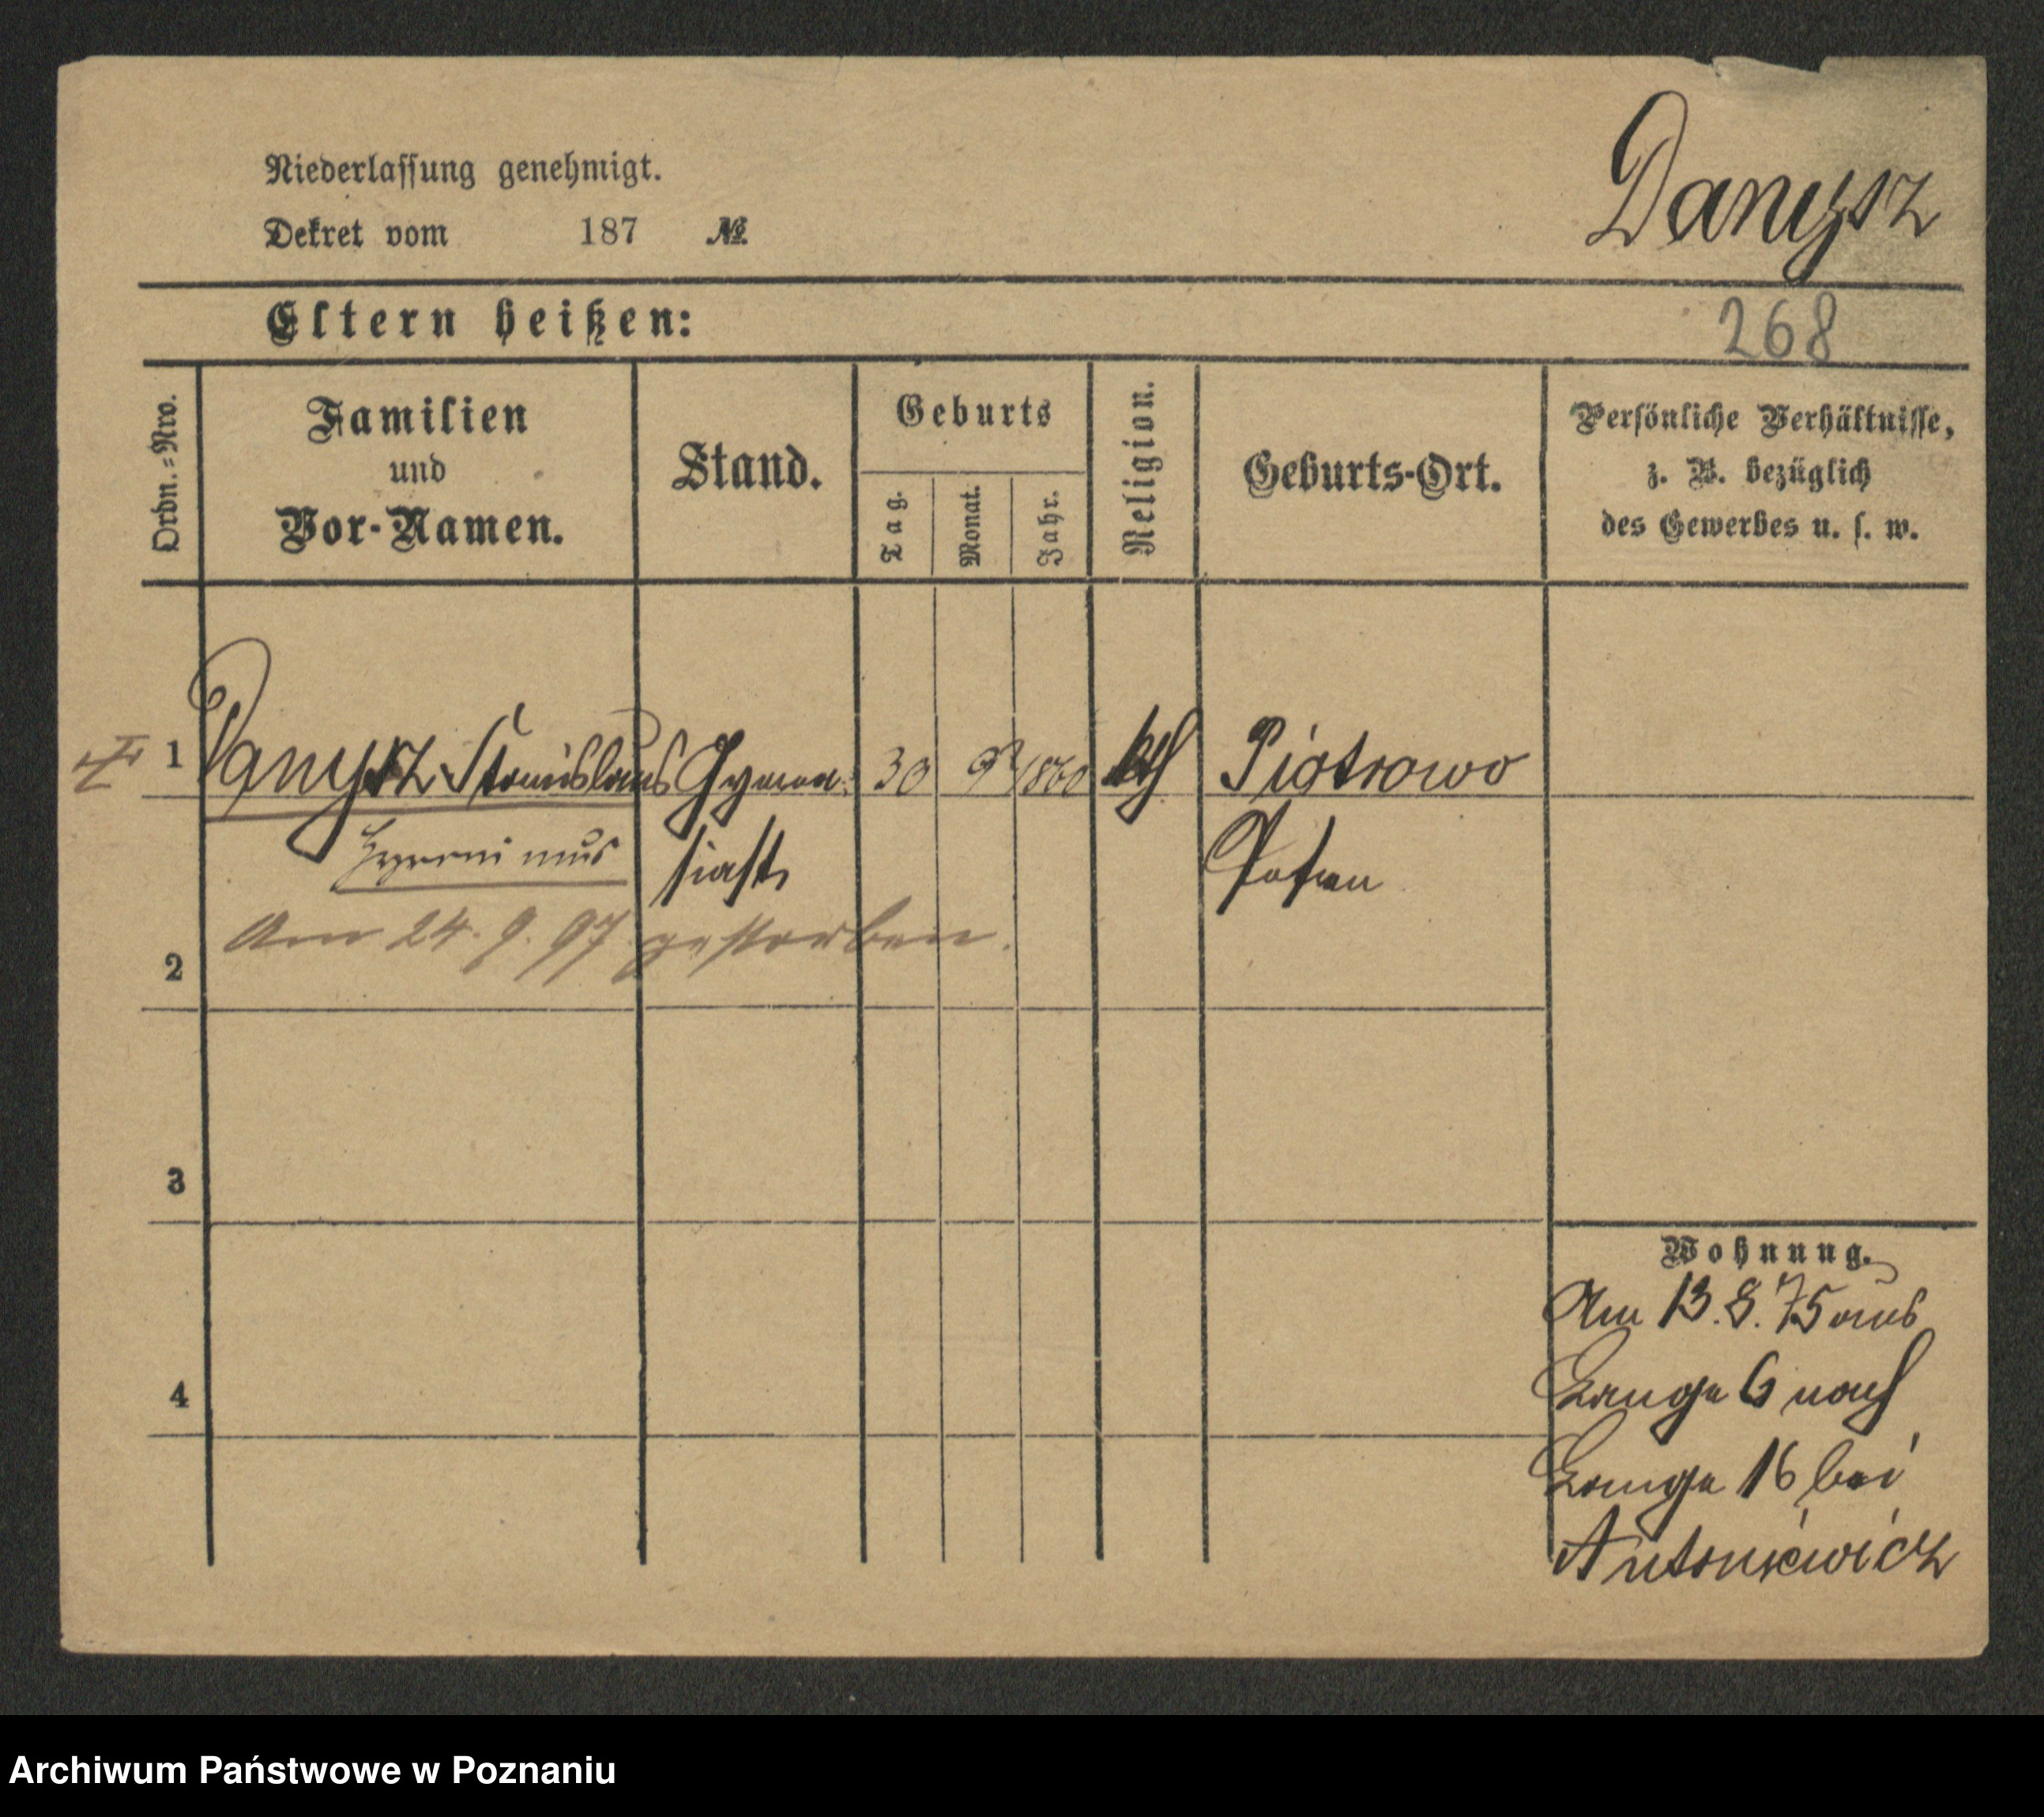 Niederlassung genehmigt.
Dekret vom 187 №
Danysz
Eltern heißen:
268
Ordn.=Nro.
Familien
und
Vor-Namen.
Stand.
Geburts
Tag.
Monat.
Jahr.
Religion.
Geburts-Ort.
Persönliche Verhältnisse,
z. B. bezüglich
des Gewerbes u. s. w.
1 Danysz Stanislaus Gymna- 30 9 1860 kth Piotrowo
siast Posen
Am 24. 9. 97 gestorben.
2
3
4
Wohnung.
Am 13. 8. 75 aus
Lange 6 nach
Lange 16 bei
Antoniewicz
Archiwum Państwowe w Poznaniu